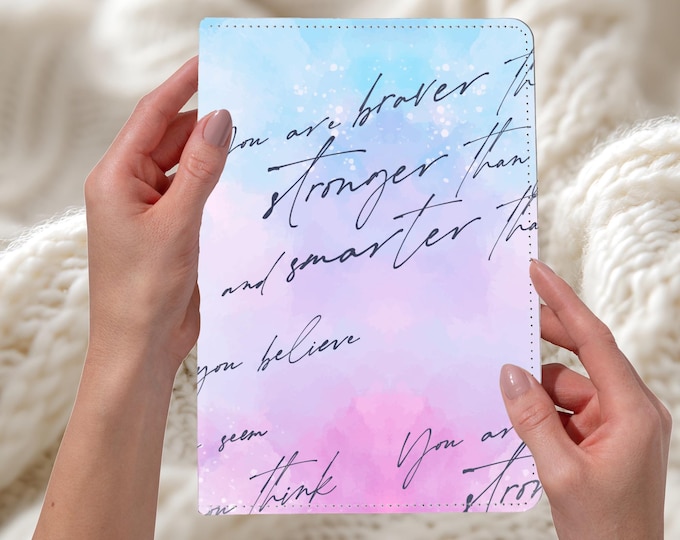 You are braver th
stronger than
and smarter tha
you believe
seem
You ar
ou think
stron